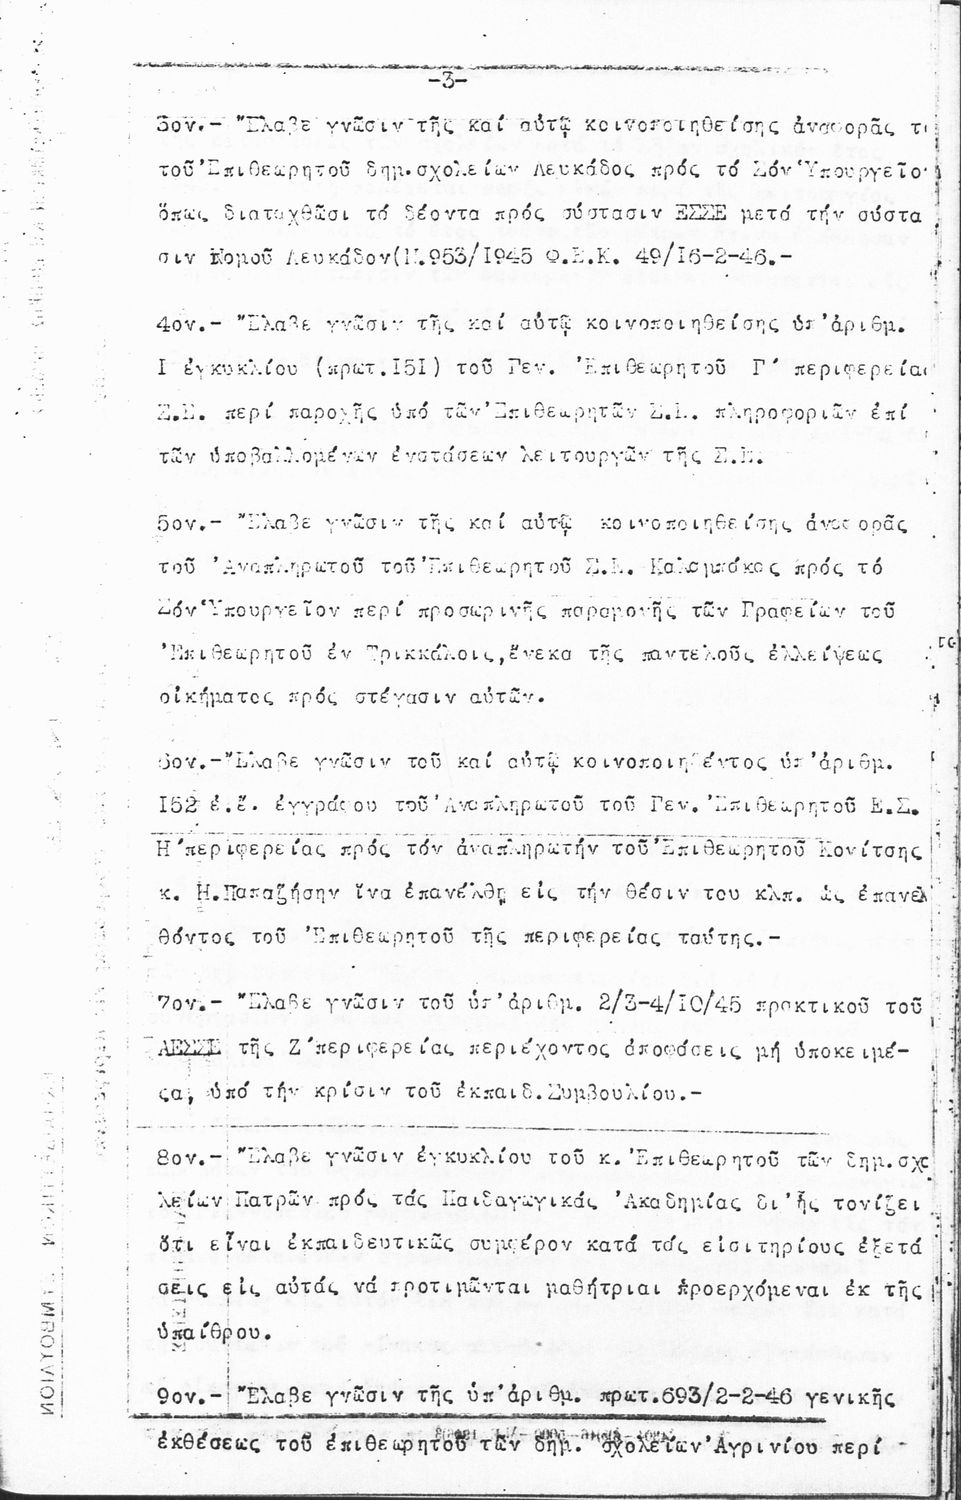 -3-
3ον.- "Ελαβε γνῶσιν τῆς καί αὐτῷ κοινοποιηθείσης ἀναφορᾶς
τοῦ Ἐπιθεωρητοῦ δημ.σχολείων Λευκάδος πρός τό Σόν Ὑπουργεῖο
ὅπως διαταχθῶσι τά δέοντα πρός σύστασιν ΕΣΣΕ μετά τήν σύστα
σιν Νομοῦ Λευκάδον(Ν.953/1945 Φ.Ε.Κ. 49/16-2-46.-
4ον.- "Ελαβε γνῶσιν τῆς καί αὐτῷ κοινοποιηθείσης ὑπ'ἀριθμ.
Ι ἐγκυκλίου (πρωτ.151) τοῦ Γεν. Ἐπιθεωρητοῦ Γ' περιφερείας
Σ.Ε. περί παροχῆς ὑπό τῶν Ἐπιθεωρητῶν Σ.Ε. πληροφοριῶν ἐπί
τῶν ὑποβαλλομένων ἐνστάσεων λειτουργῶν τῆς Σ.Ε.
5ον.- "Ελαβε γνῶσιν τῆς καί αὐτῷ κοινοποιηθείσης ἀναφορᾶς
τοῦ Ἀναπληρωτοῦ τοῦ Ἐπιθεωρητοῦ Σ.Ε. Καλαμπάκας πρός τό
Σόν Ὑπουργεῖον περί προσωρινῆς παραμονῆς τῶν Γραφείων τοῦ
Ἐπιθεωρητοῦ ἐν Τρικκάλοις,ἕνεκα τῆς παντελοῦς ἐλλείψεως
οἰκήματος πρός στέγασιν αὐτῶν.
6ον.-"Ελαβε γνῶσιν τοῦ καί αὐτῷ κοινοποιηθέντος ὑπ'ἀριθμ.
152 ἐ.ἔ. ἐγγράφου τοῦ Ἀναπληρωτοῦ τοῦ Γεν. Ἐπιθεωρητοῦ Ε.Σ.
Η'περιφερείας πρός τόν ἀναπληρωτήν τοῦ Ἐπιθεωρητοῦ Κονίτσης
κ. Η.Παπαζήσην ἵνα ἐπανέλθῃ εἰς τήν θέσιν του κλπ. ὡς ἐπανελ
θόντος τοῦ Ἐπιθεωρητοῦ τῆς περιφερείας ταύτης.-
7ον.- "Ελαβε γνῶσιν τοῦ ὑπ'ἀριθμ. 2/3-4/10/45 πρακτικοῦ τοῦ
ΑΕΣΣΕ τῆς Ζ'περιφερείας περιέχοντος ἀποφάσεις μή ὑποκειμέ-
ςα, ὑπό τήν κρίσιν τοῦ ἐκπαιδ.Συμβουλίου.-
8ον.- "Ελαβε γνῶσιν ἐγκυκλίου τοῦ κ. Ἐπιθεωρητοῦ τῶν δημ.σχο
λείων Πατρῶν πρός τάς Παιδαγωγικάς Ἀκαδημίας δι'ἧς τονίζει
ὅτι εἶναι ἐκπαιδευτικῶς συμφέρον κατά τάς εἰσιτηρίους ἐξετά
σεις εἰς αὐτάς νά προτιμῶνται μαθήτριαι προερχόμεναι ἐκ τῆς
ὑπαίθρου.
9ον.- "Ελαβε γνῶσιν τῆς ὑπ'ἀριθμ. πρωτ.693/2-2-46 γενικῆς
ἐκθέσεως τοῦ ἐπιθεωρητοῦ τῶν δημ. σχολείων Ἀγρινίου περί